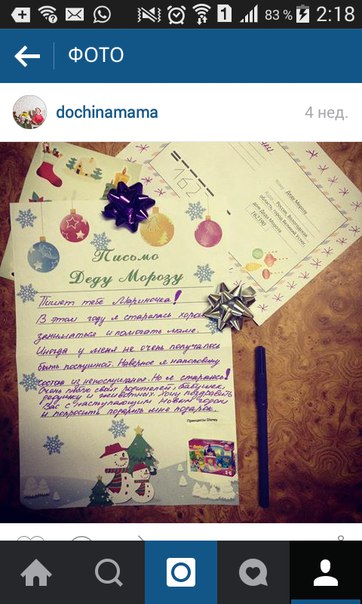 83 % 2:18
ФОТО
dochinamama 4 нед.
Письмо
Деду Морозу
Пишет тебе Мариночка!
В этом году я старалась хорошо
заниматься и помогать маме.
Иногда у меня не очень получалось
быть послушной. Наверное я наполовину
состою из непослушания. Но я стараюсь!
Очень люблю своих родителей, бабушек,
дедушку и животных. Хочу поздравить
Вас с наступающим Новым годом
и попросить подарить мне подарок.
Принцессы Disney